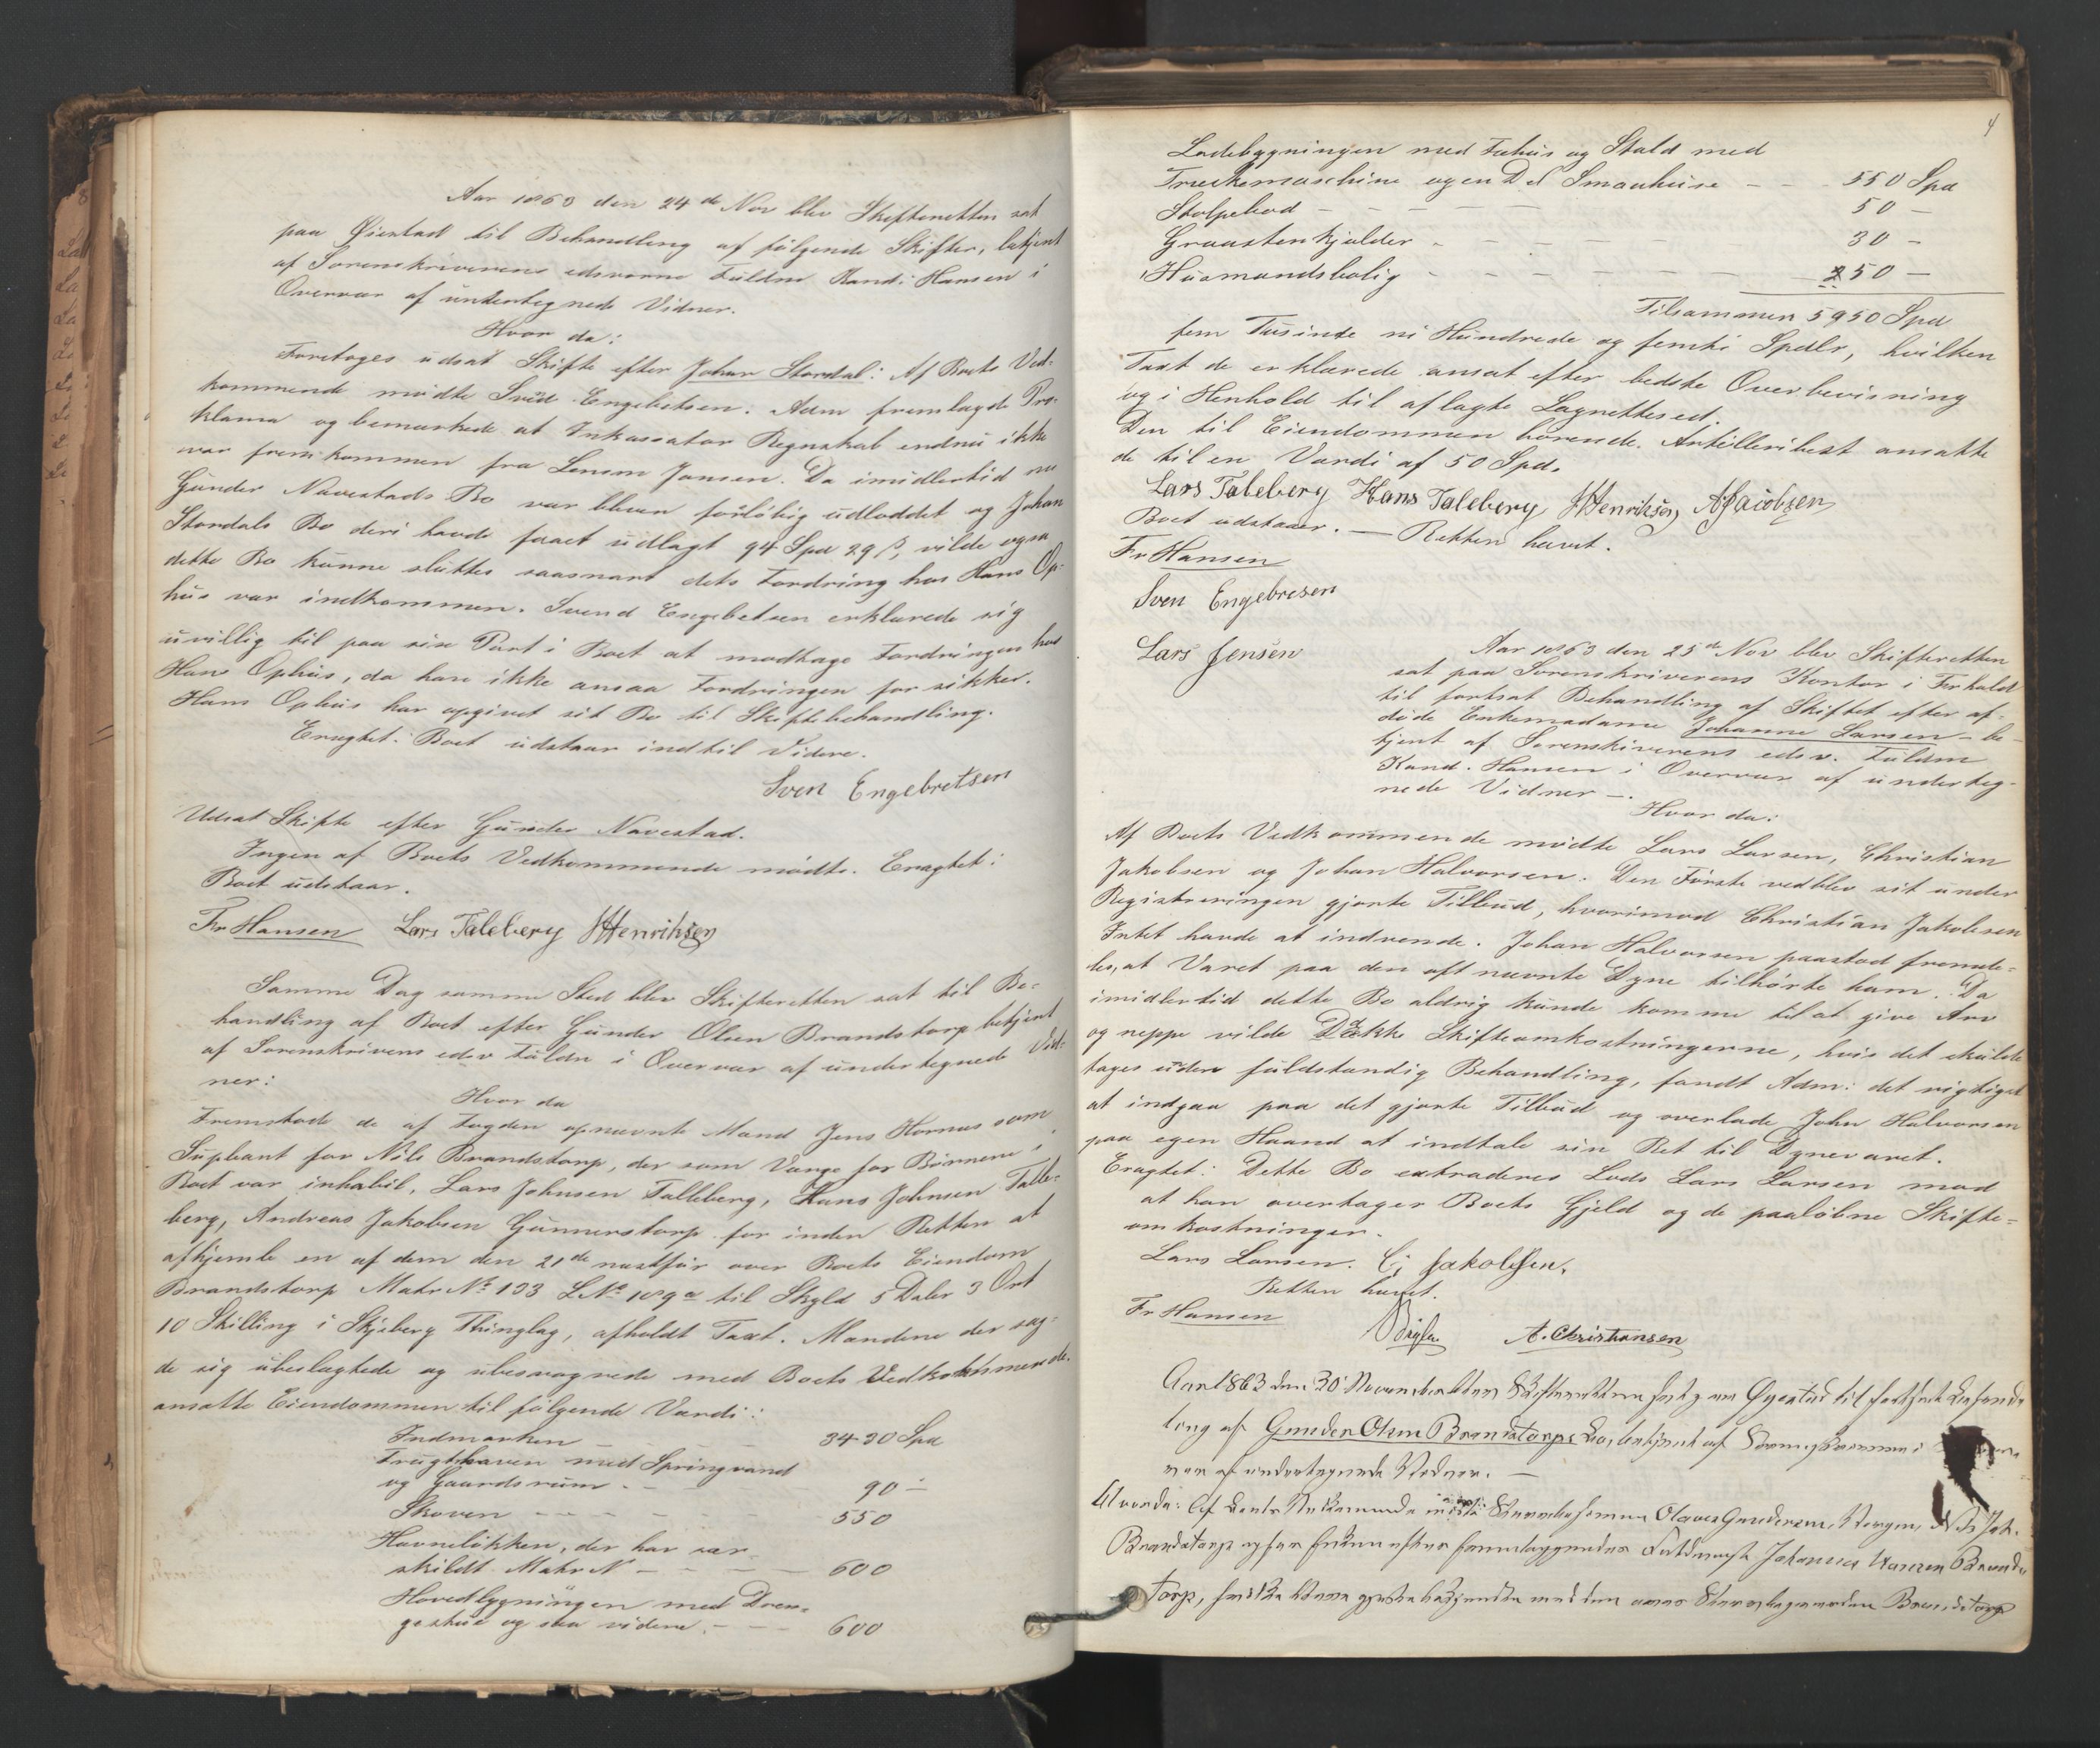 Aar 1863 den 24de Nov blev Skifteretten sat
paa Øiestad til Behandling af følgende Skifter, betjent
af Sorenskriverens edsvorne Fuldm Kand: Hansen i
Overvær af undertegnede Vidner.
Hvor da:
Foretoges udsat Skifte efter Johan Stordal: Af Boets Ved-
kommende mødte Svend Engebretsen. Adm fremlagde Pro-
klama og bemærkede at Inkassator Regnskab endnu ikke
var fremkommen fra Lensm Jansen. Da imidlertid nu
Gunder Navestads Bo var bleven foreløbig udloddet og Johan
Stordals Bo deri havde faaet udlagt 94 Spd 29 ß, vilde ogsaa
dette Bo kunne sluttes saasnart dets Fordring hos Hans Op-
hus var indkommen. Svend Engebretsen erklærede sig
uvillig til paa sin Part i Boet at modtage Fordringen hos
Hans Ophus, da han ikke ansaa Fordringen for sikker.
Hans Ophus har opgivet sit Bo til Skiftebehandling.
Eragtet: Boet udstaar indtil Videre.
Sven Engebretsen
Udsat Skifte efter Gunder Navestad.
Ingen af Boets Vedkommende mødte. Eragtet:
Boet udstaar.
Fr Hansen Lars Taleberg HHenriksen
Samme Dag samme Sted blev Skifteretten sat til Be-
handling af Boet efter Gunder Olsen Brandstorp betjent
af Sorenskrivens edsv Fuldm i Overvær af undertegnede Vid-
ner:
Hvor da
Fremstode de af Fogden opnævnte Mænd Jens Hornæs som
Supleant for Nils Brandstorp, der som Værge for Børnene i
Boet var inhabil, Lars Johnsen Talleberg, Hans Johnsen Talle-
berg, Andreas Jakobsen Gunnerstorp for inden Retten at
afhjemle en af dem den 21de næstfør over Boets Eiendom
Brandstorp Matr No 133 LNo 189a til Skyld 5 Daler 3 Ort
10 Skilling i Skjeberg Thinglag, afholdt Taxt. Mændene der sag-
de sig ubeslægtede og ubesvogrede med Boets Vedkommende
ansatte Eiendommen til følgende Værdi:
Indmarken – 3430 Spd
Frugthaven med Springvand
og Gaardsrum – 90 –
Skoven – – – – – – 550
Havneløkken, der har sær-
skildt Matr N – – – – 600
Hovedbygningen med Dren-
gestue og saa videre – – – 600
4
Ladebygningen med Fæhus og Stald med
Træskemaschine og en Del Smaahuse – – 550 Spd
Stolpebod – – – – – 50 –
Graastenkjelder – – – – 30 –
Husmandsbolig – – – – – – 50 –
Tilsammen 5950 Spd
fem Tusinde ni Hundrede og femti Spdlr, hvilken
Taxt de erklærede ansat efter bedste Overbevisning
og i Henhold til aflagte Lagrettesed.
Den til Eiendommen hørende Artillerihest ansatte
de til en Værdi af 50 Spd.
Lars Taleberg Hans Taleberg HHenriksen AJacobsen
Boet udstaar. — Retten hævet.
Fr Hansen
Sven Engebresen
Lars Jensen
Aar 1863 den 25de Nov blev Skifteretten
sat paa Sorenskriverens Kontor i Frkhald
til fortsat Behandling af Skiftet efter af-
døde Enkemadame Johanne Larsen – be-
tjent af Sorenskriverens edsv. Fuldm
Kand. Hansen i Overvær af underteg-
nede Vidner –.
Hvor da:
Af Boets Vedkommende mødte Lars Larsen, Christian
Jakobsen og Johan Halvorsen. Den Første vedblev sit under
Registreringen gjorte Tilbud, hvorimod Christian Jakobsen
Intet havde at indvende. Johan Halvorsen paastod fremde-
les, at Varet paa den oft nævnte Dyne tilhørte ham. Da
imidlertid dette Bo aldrig kunde komme til at give Arv
og neppe vilde Dække Skifteomkostningerne, hvis det skulde
tages under fuldstændig Behandling, fandt Adm: det rigtigst
at indgaa paa det gjorte Tilbud og overlade John Halvorsen
paa egen Haand at indtale sin Ret til Dynevaret.
Eragtet: Dette Bo extraderes Lods Lars Larsen mod
at han overtager Boets Gjeld og de paaløbne Skifte-
omkostninger.
Lars Larsen. C; Jakobssen.
Retten hævet.
Fr Hansen A. Christiansen
Aar 1863 den 30 November blev Skifteretten sat paa Øyestad til fortsat Behand-
ling af Gunder Olsen Brandstorps Bo, betjent af Sorenskriveren i
vær af undertegnede Vidner. —
Hvorda: Af Boets Vedkommende mødte Olaves Gundersen, Værgen, Nils Joh.
Brandstorp og for Enken efter fremlæggendes Fuldmagt Johannes Hansen Brands-
torp,